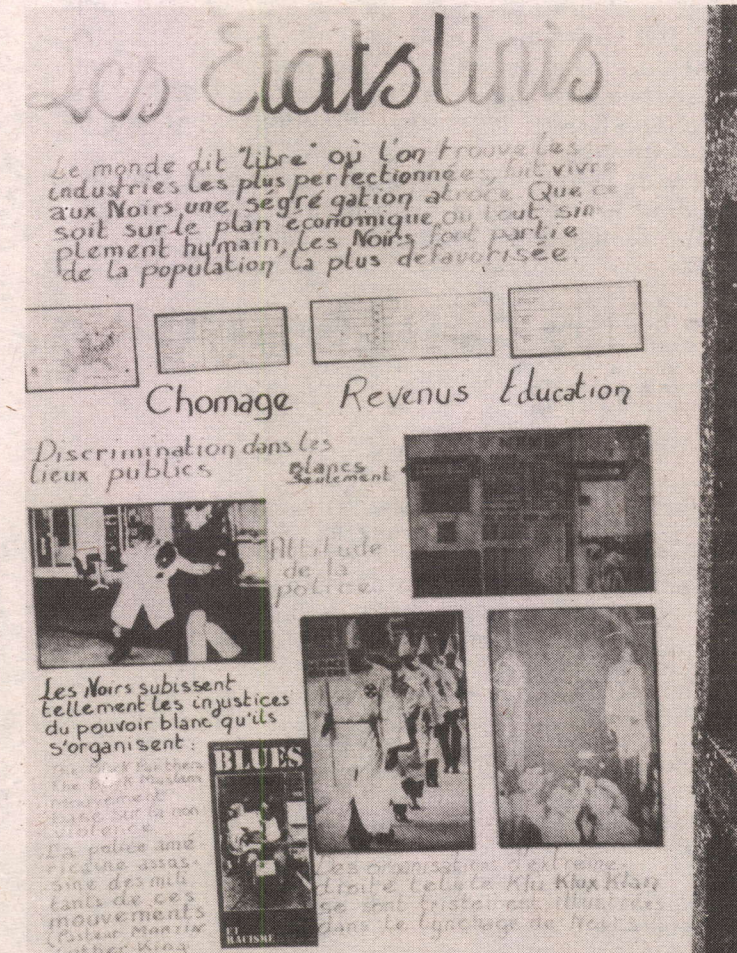 Les Etats Unis
Le monde dit "libre" où l'on trouve les
industries les plus perfectionnées, fait vivre
aux Noirs une ségrégation atroce. Que ce
soit sur le plan économique ou tout sim-
plement humain, les Noirs font partie
de la population la plus défavorisée.
Chomage Revenus Éducation
Discrimination dans les
lieux publics
Blancs
seulement
Attitude
de la
police
Les Noirs subissent
tellement les injustices
du pouvoir blanc qu'ils
s'organisent :
The Black Panthers
The Black Muslam
Mouvement
base sur la non
violence.
La police amé-
ricaine assas-
sine des mili
tants de ces
mouvements
(Pasteur MARTIN
Luther King
BLUES
ET
RACISME
Les organisations d'extrème
droite tel le Klu Klux Klan
se sont tristement illustrées
dans le lynchage de Noirs